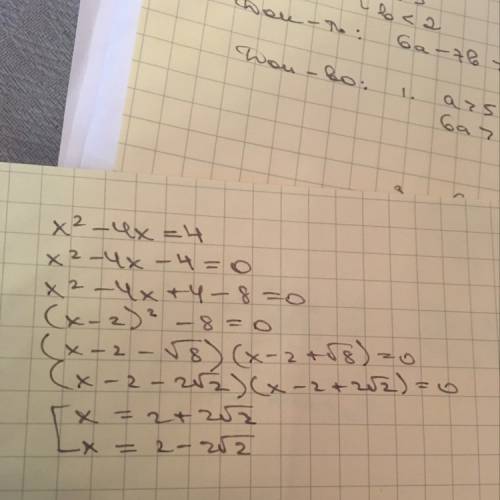 b < 2
6a - 7b -
1. a > 5
6a >
x² - 4x = 4
x² - 4x - 4 = 0
x² - 4x + 4 - 8 = 0
(x - 2)² - 8 = 0
(x - 2 - √8)(x - 2 + √8) = 0
(x - 2 - 2√2)(x - 2 + 2√2) = 0
[x = 2 + 2√2
x = 2 - 2√2